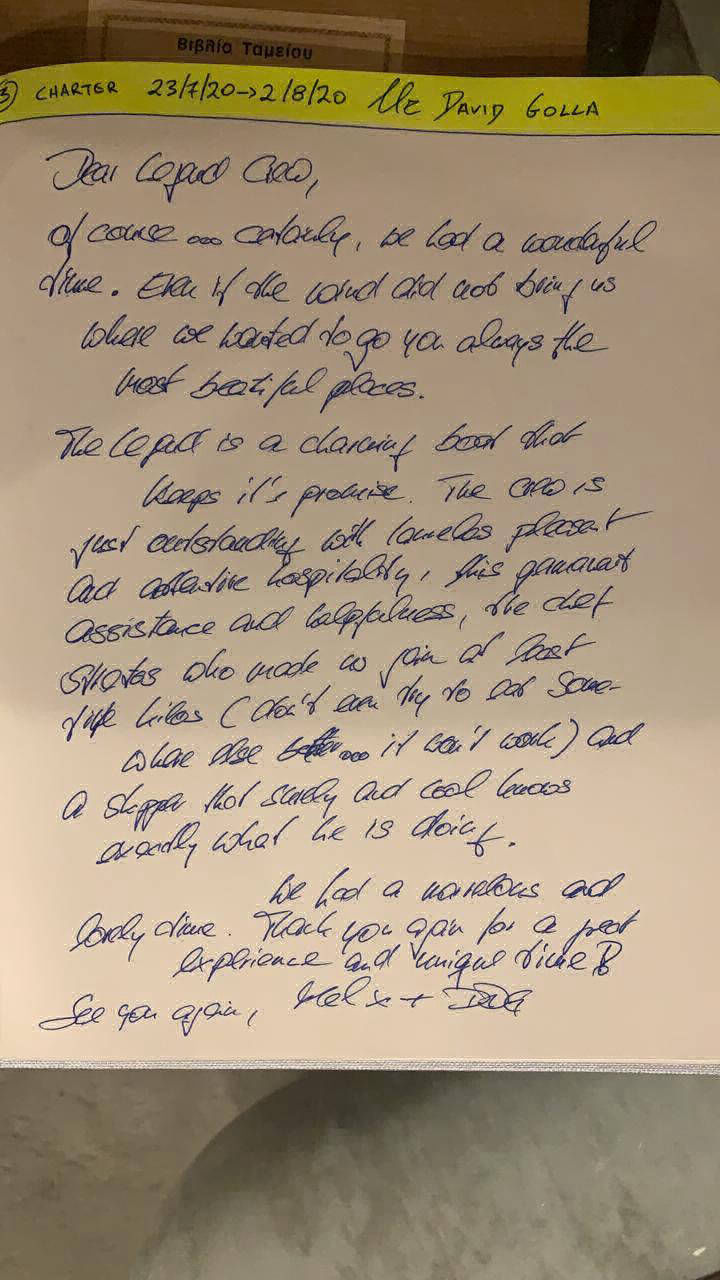 Βιβλίο Ταμείου
3 CHARTER 23/7/20→2/8/20 Mr DAVID GOLLA
Dear Legand Crew,
of course ... certainly, we had a wonderful
time. Even if the wind did not bring us
where we wanted to go you always the
most beautiful places.
The Legand is a charming boat that
keeps it's promise. The crew is
just outstanding with pleasent
and attentive hospitality, this
assistance and helpfulness, the chef
Stratos who made us gain at least
kilos (don't even try to eat some-
where else ... it won't work) and
a skipper that surely and cool knows
exactly what he is doing.
We had a marvelous and
lovely time. Thank you again for a great
experience and unique time
See you again, +